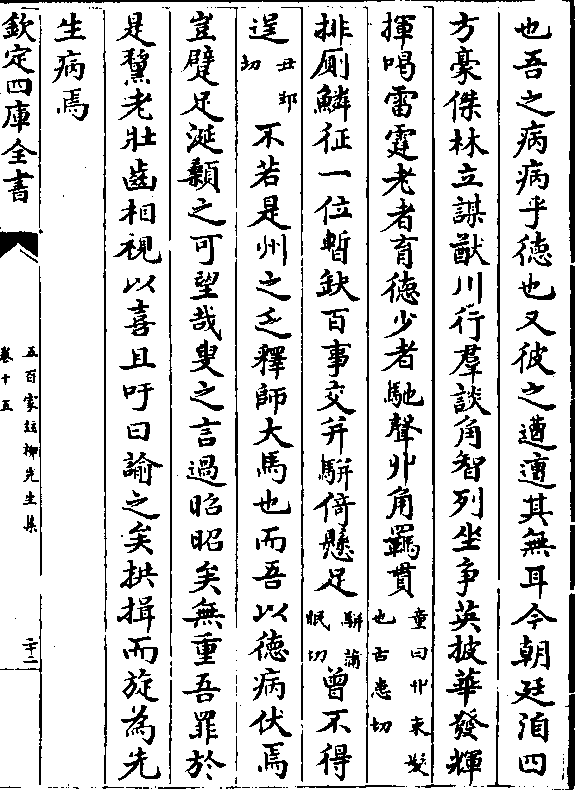 也吾之病病乎徳也又彼之遭遭其無耳今朝廷洎四
方豪傑林立謀猷川行羣談角智列坐争英披華發輝
揮喝雷霆老者育徳少者馳聲丱角羈貫童曰丱束髮也古患切
排厠鱗征一位暫缺百事交并駢倚懸足駢蒲眠切曾不得
逞丑郢切不若是州之乏釋師大馬也而吾以徳病伏焉
豈躄足涎顙之可望哉叟之言過昭昭矣無重吾罪於
是黧老壯齒相視以喜且吁曰諭之矣拱揖而旋為先
生病焉
欽定四庫全書
五百家註柳先生集
卷十五
二十二